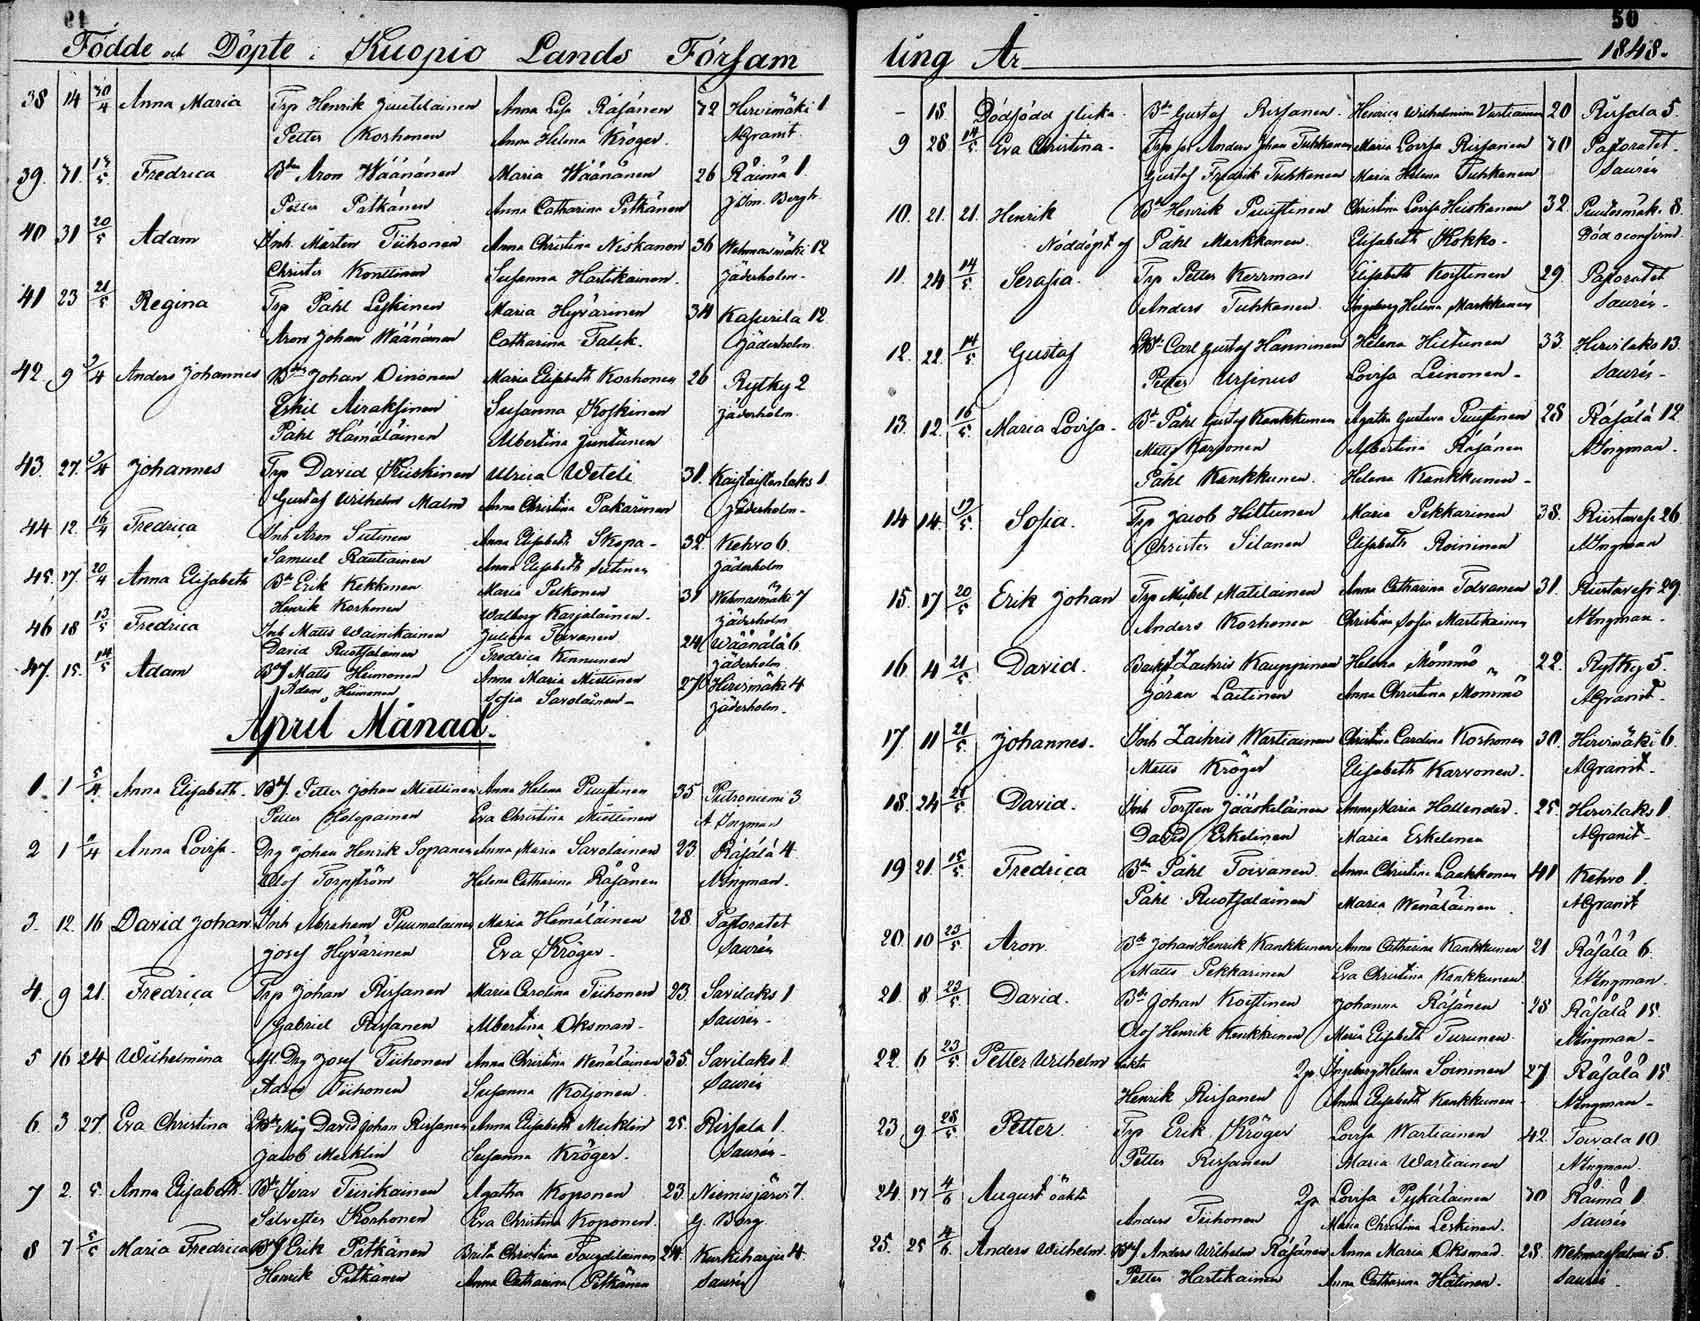 61
Födde och Döpte i Kuopio Lands Församling År 1848.
50
38 14 30/4 Anna Maria Trp Henrik Juutilainen Anna Lisa Räsänen 72 Hirvimäki 1
Petter Korhonen Anna Helena Kröger. AGranit.
39. 71. 5 Fredrica Bd Aron Wäänänen Maria Wäänänen 26 Räimä 1.
Petter Pitkänen Anna Catharina Pitkänen Bergh
40 31 20/5 Adam Inh Mårten Tiihonen Anna Christina Niskanen 36 Wehmasmäki 12
Christer Konttinen Susanna Hartikainen. Jäderholm-
41 23 21/5 Regina Trp Påhl Leskinen Maria Hyvärinen 34 Kasurila 12
Aron Johan Wäänänen Catharina Jäderholm.
42. 9 /4 Anders Johannes Bd Johan Oinonen Maria Elisabeth Korhonen 26 Rytky 2
Eskil Airaksinen Susanna Koskinen Jäderholm.
Påhl Hämäläinen Albertina Juntunen
43. 27. /4 Johannes Trp David Kuiskinen Ulrica Weteli 31. 1
Gustaf Wilhelm Malm Anna Christina Pakarinen Jäderholm-
44 12. 16/4 Fredrica Inh Aron Sutinen Anna Elisabeth Skopa- 32. Kehvo 6.
Samuel Rautiainen Anna Elisabeth Sutinen Jäderholm
45. 17. 20/4 Anna Elisabeth Bd Erik Kekkonen Maria Pelkonen 31 Wehmasmäki 7
Henrik Korhonen Walborg Karjalainen. Jäderholm
46 18 13/5 Fredrica Inh Matts Wainikainen Juliana Toivanen 24 Wäänälä 6
David Ruotsalainen Fredrica Kinnunen Jäderholm
47. 15. 14/5 Adam Matts Heimonen Anna Maria Miettinen 27 Hirvimäki 4
Adam Heimonen Sofia Savolainen- Jäderholm.
April Månad.
1 1 5/4 Anna Elisabeth. Petter Johan Miettinen Anna Helena Puustinen 35 3
Petter Holopainen Eva Christina Miettinen A Ingman
2 1 /4 Anna Lovisa. Drg Johan Henrik Sopanen Anna Maria Savolainen 23 Räsälä 4
Olof Torpström Helena Catharina Räsänen AIngman.
3. 12. 16 David Johan Inh Abraham Puumalainen Maria Hämäläinen 28. Pastoratet
Josef Hyvärinen Eva Kröger. Saurén
4. 9 21. Fredrica Trp Johan Rissanen Maria Carolina Tiihonen 23. Savilaks 1
Gabriel Rissanen Albertina Oksman. Saurén-
5 16 24 Wilhelmina Drg Josef Tiihonen Anna Christina Wenäläinen 35. Savilaks 1.
Adam Tiihonen Susanna Koljonen. Saurén
6. 3 27. Eva Christina Bd Måg David Johan Rissanen Anna Elisabeth Mecklin 25. Rissala 1.
Jacob Mecklin Susanna Kröger. Saurén-
7 2. 5. Anna Elisabeth Bd Ivar Tiirikainen Agatha Koponen 23. Niemisjärvi 7.
Silvester Korhonen Eva Christina Koponen. G. Berg.
8 7 5/5 Maria Fredrica Erik Pitkänen Brita Christina 24. Kurkiharju 4
Henrik Pitkänen Anna Catharina Pitkänen Saurén
- 18. Dödfödd flicka. Bd Gustaf Rissanen. Henrica Wilhelmina Vartiainen 20 Rissala 5.
9 28 14/5 Eva Christina- Anders Johan Tuhkanen Maria Lovisa Rissanen 70 Pastoratet.
Gustaf Fredrik Tuhkanen Maria Helena Tuhkanen Saurén
10. 21. 21. Henrik Bd Henrik Puustinen Christina Lovisa Huskonen 32. 8.
Nöddöpt af Påhl Markkanen. Elisabeth Kokko. Död oconfirm.
11. 24 14/5 Serafia. Trp Petter Kerrman Elisabeth Koistinen 29. Pastoratet
Anders Tuhkanen. Ingeborg Helena Markkanen Saurén-
12. 22. 14/5 Gustaf Bd Carl Gustaf Hänninen Helena Huttunen 33. Hirvilaks 13.
Petter Ursinus Lovisa Leinonen- Saurén-
13. 12. 16/5 Maria Lovisa. Bd Påhl Gustaf Kankkunen Agatha Gustava Puustinen 28 Räsälä 12.
Matts Karvonen Albertina Räsänen AIngman.
Påhl Kankkunen. Helena Kankkunen-
14 14. /5 Sofia. Trp Jacob Hiltunen Maria Pekkarinen 38. Riistavesi 26
Christer Silanen Elisabeth Roininen AIngman
15. 17 20/5 Erik Johan Trp Mickel Matilainen Anna Catharina Tolvanen 31. Riistavesi 29.
Anders Korhonen Christina Sofia Martikainen AIngman-
16 4 21/5 David. Zachris Kauppinen Helena Mömmö 22. Rytky 5.
Jöran Laitinen Anna Christina Mömmö AGranit.
17 11 21/5 Johannes- Inh Zachris Wartiainen Christina Carolina Korhonen 30. Hirvimäki 6.
Matts Kröger Elisabeth Karvonen. AGranit-
18. 24 21/5 David. Inh Torsten Jääskeläinen Anna Maria Hollender. 25. Hirvilaks 1
David Erkelinen Maria Erkelinen AGranit-
19 21. 15/5 Fredrica Bd Påhl Toivanen. Anna Christina Laakkonen 41 Kehvo 1.
Påhl Ruotsalainen Maria Wenäläinen AGranit
20. 10 23/5 Aron. Bd Johan Henrik Kankkunen Anna Catharina Kankkunen 21 Räsälä 6.
Matts Pekkarinen Eva Christina Kankkunen AIngman.
21 8 23/5 David. Bd Johan Koistinen Johanna Räsänen 28 Räsälä 15.
Olof Henrik Kankkunen Maria Elisabeth Turunen. AIngman-
22. 6 23/5 Petter Wilhelm oäkta 2p Ingeborg Helena Soininen 27 Räsälä 15.
Henrik Rissanen Anna Elisabeth Kankkunen- AIngman-
23 9 28/5 Petter. Trp Erik Kröger Lovisa Wartiainen 42. Toivala 10.
Petter Rissanen Maria Wartiainen AIngman.
24. 17 4/6 August oäkta 2p Lovisa Pyskäläinen 70 Räimä 1
Anders Tiihonen Maria Christina Leskinen. Saurén
25. 25 4/6 Anders Wilhelm. Anders Wilhelm Räsänen Anna Maria Oksman. 28. Wehmersalmi 5.
Petter Hartikainen Anna Catharina Hätinen. Saurén.